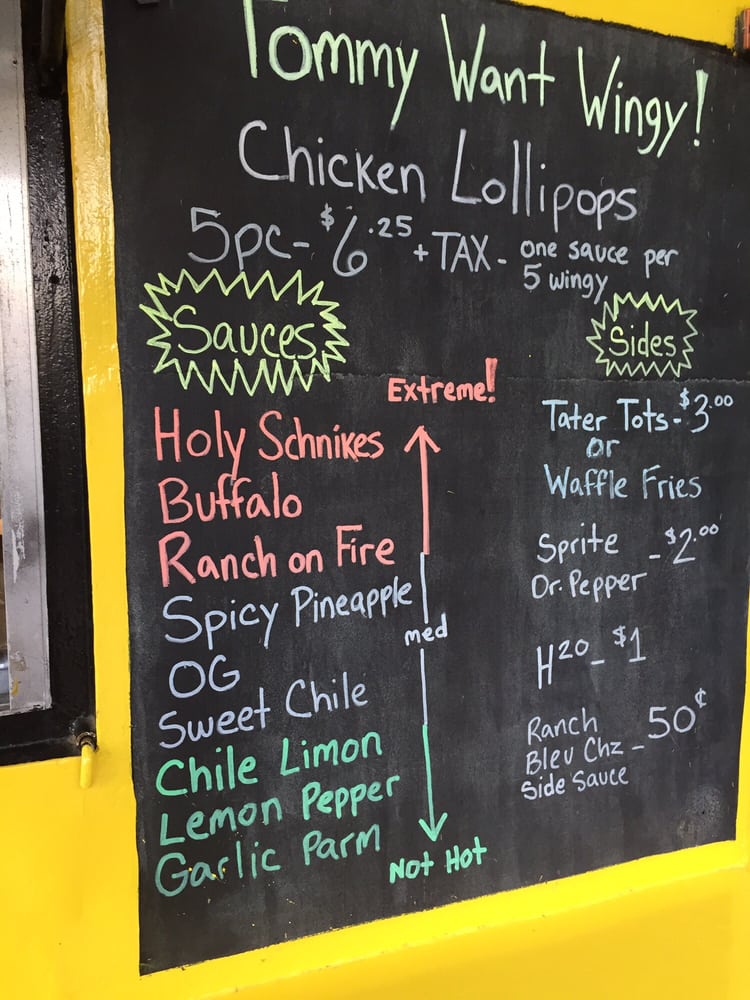 Tommy Want Wingy!
Chicken Lollipops
5pc- $6.25 + TAX - one sauce per
5 wingy
Sauces
Extreme!
Holy Schnikes
Buffalo
Ranch on Fire
Spicy Pineapple
med
OG
Sweet Chile
Chile Limon
Lemon Pepper
Garlic Parm
Not Hot
Sides
Tater Tots - $3.00
or
Waffle Fries
Sprite - $2.00
Dr. Pepper
H20 - $1
Ranch
Bleu Chz - 50¢
Side Sauce